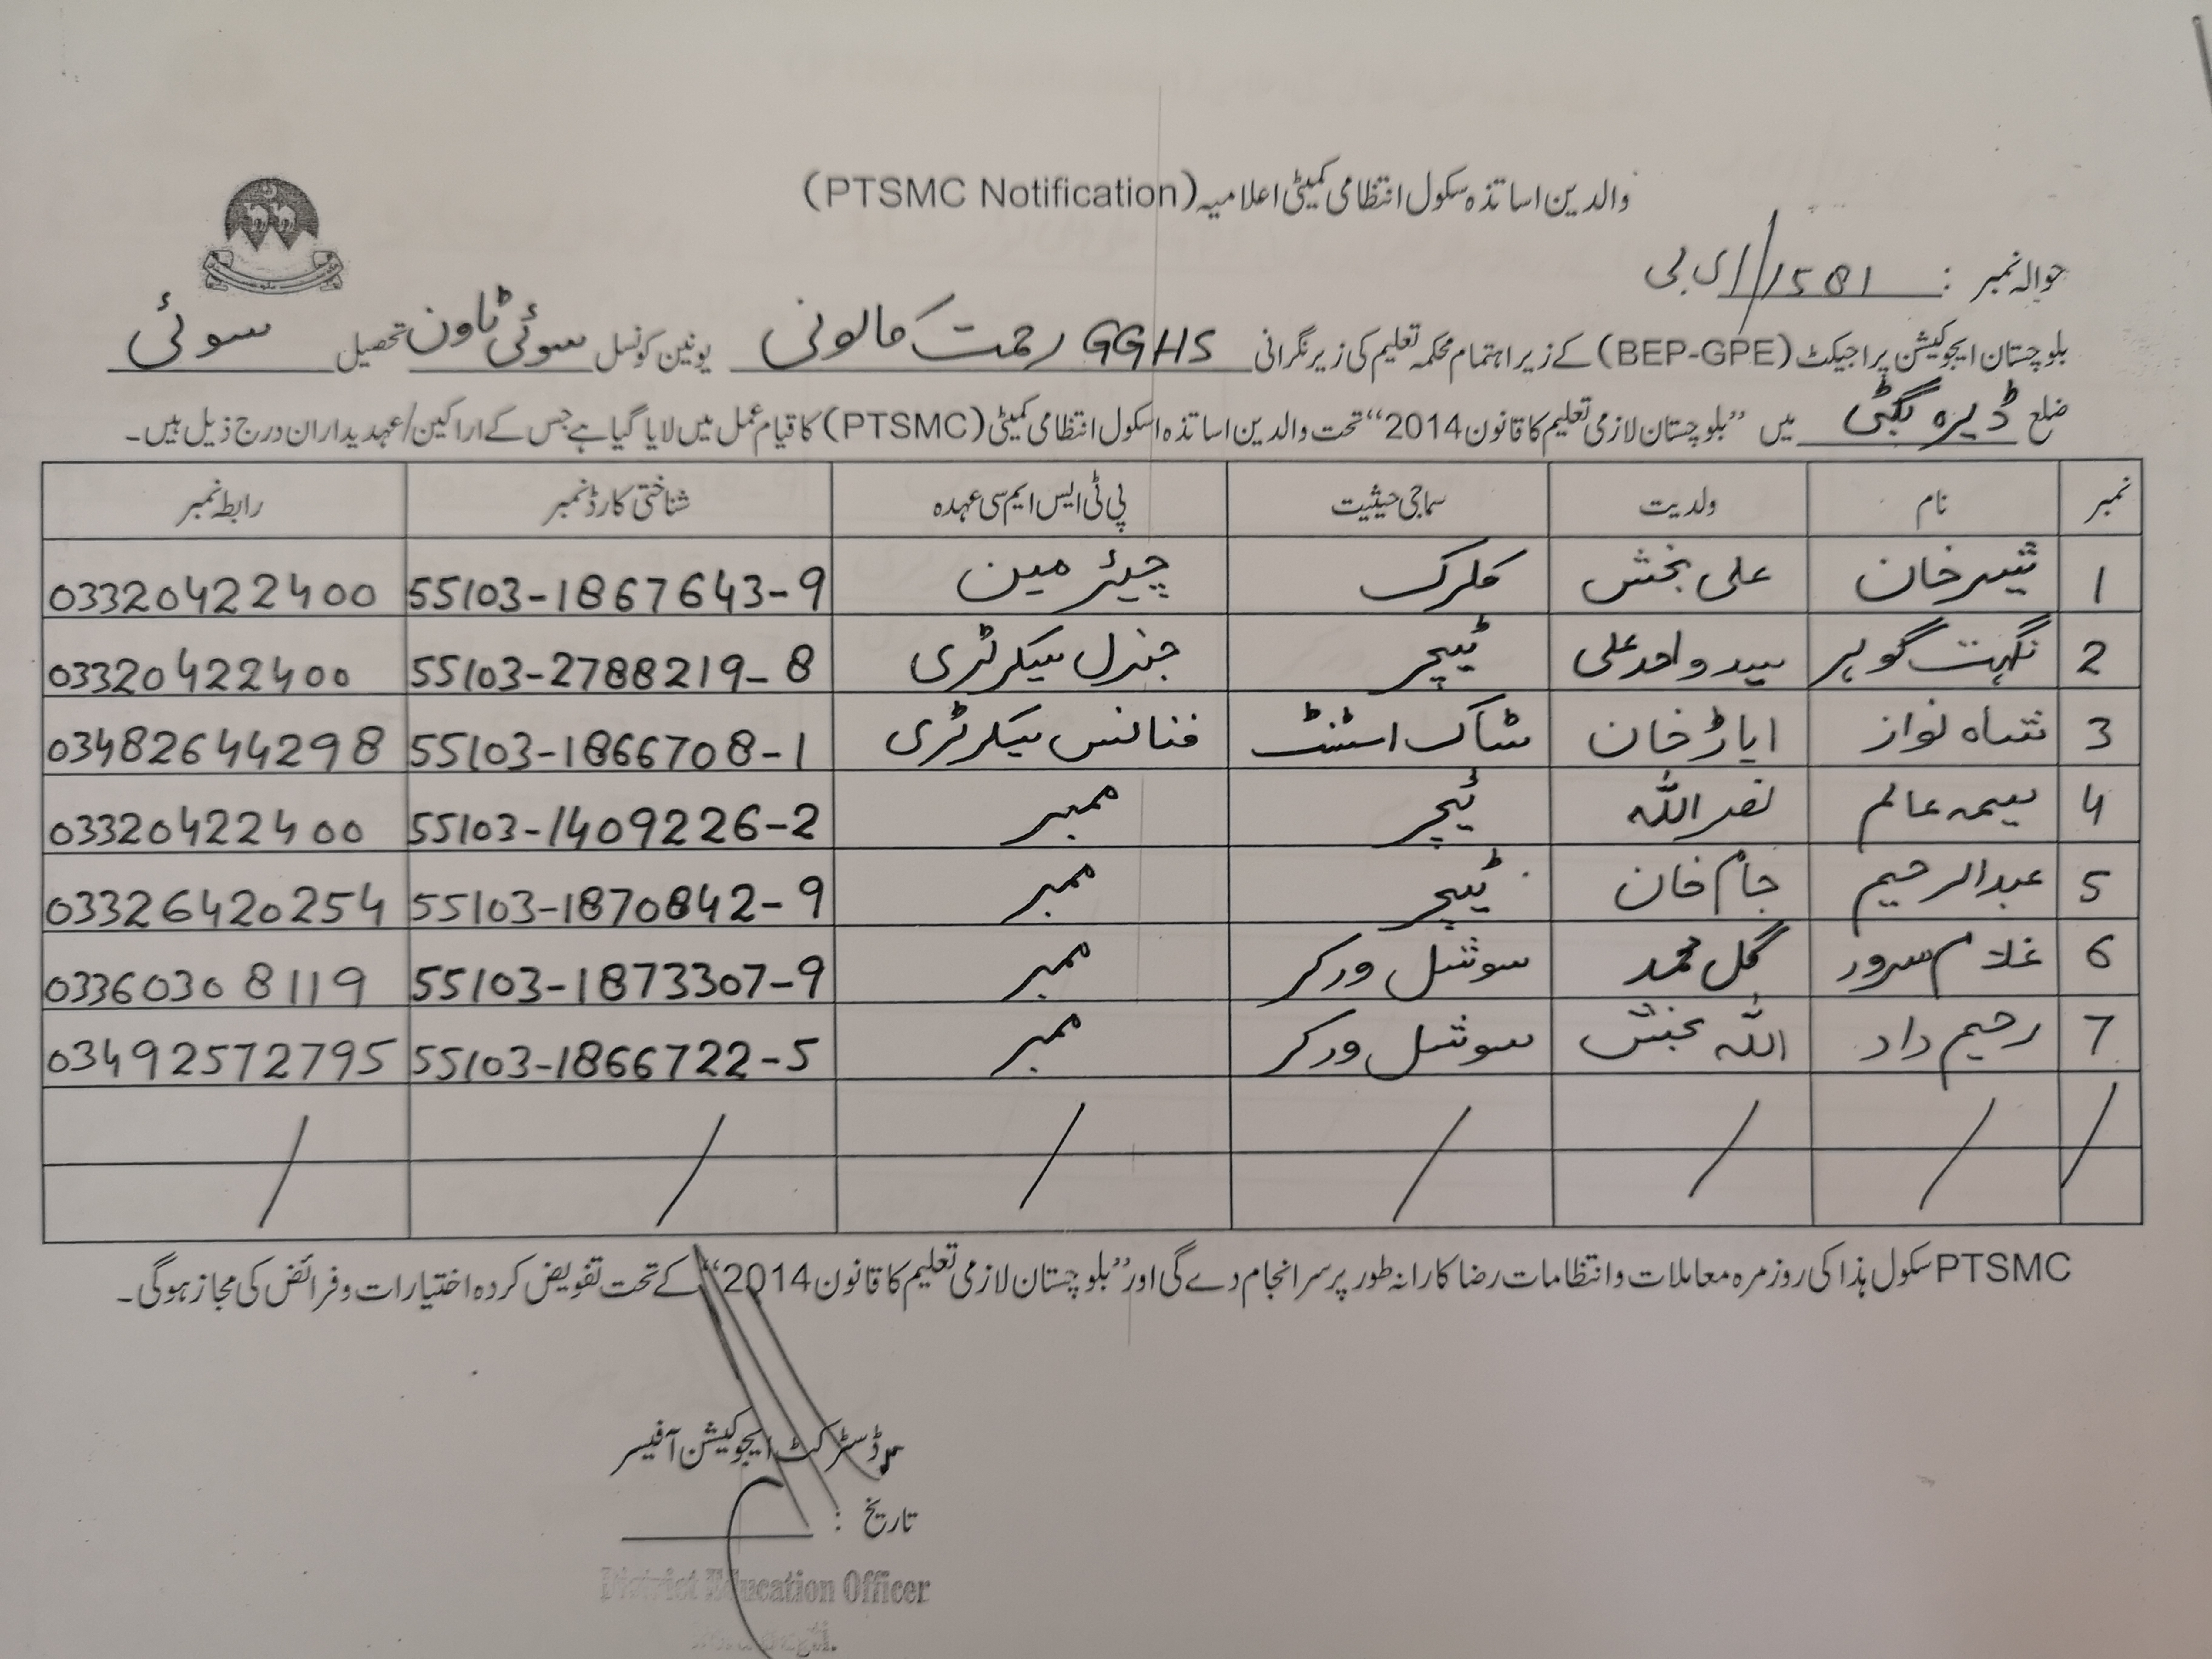 والدین اساتذہ سکول انتظامی کمیٹی اعلامیہ (PTSMC Notification)
حوالہ نمبر : 1581 // ای بی
بلوچستان ایجوکیشن پراجیکٹ (BEP-GPE) کے زیر اہتمام محکمہ تعلیم کی زیر نگرانی GGHS رحمت کالونی یونین کونسل سوئی ٹاون تحصیل سوئی
ضلع ڈیرہ بگٹی میں ”بلوچستان لازمی تعلیم کا قانون 2014“ تحت والدین اساتذہ اسکول انتظامی کمیٹی (PTSMC) کا قیام عمل میں لایا گیا ہے جس کے اراکین/عہدیداران درج ذیل ہیں۔
نمبر نام ولدیت سماجی حیثیت پی ٹی ایس ایم سی عہدہ شناختی کارڈ نمبر رابطہ نمبر
1 شیر خان علی بخش کلرک چیئرمین 55103-1867643-9 03320422400
2 نگہت گوہر سید واحد علی ٹیچر جنرل سیکرٹری 55103-2788219-8 03320422400
3 شاہ نواز ایاز خان سٹاک اسٹنٹ فنانس سیکرٹری 55103-1866708-1 03482644298
4 عالم نصر اللہ ٹیچر ممبر 55103-1409226-2 03320422400
5 عبدالرحیم جام خان ٹیچر ممبر 55103-1870842-9 03326420254
6 غلام سرور گل محمد سوشل ورکر ممبر 55103-1873307-9 03360308119
7 رحیم داد اللہ بخش سوشل ورکر ممبر 55103-1866722-5 03492572795
PTSMC سکول ہذا کی روزمرہ معاملات و انتظامات رضا کارانہ طور پر سر انجام دے گی اور ”بلوچستان لازمی تعلیم کا قانون 2014“ کے تحت تفویض کردہ اختیارات و فرائض کی مجاز ہوگی۔
ڈسٹرکٹ ایجوکیشن آفیسر
تاریخ :
District Education Officer